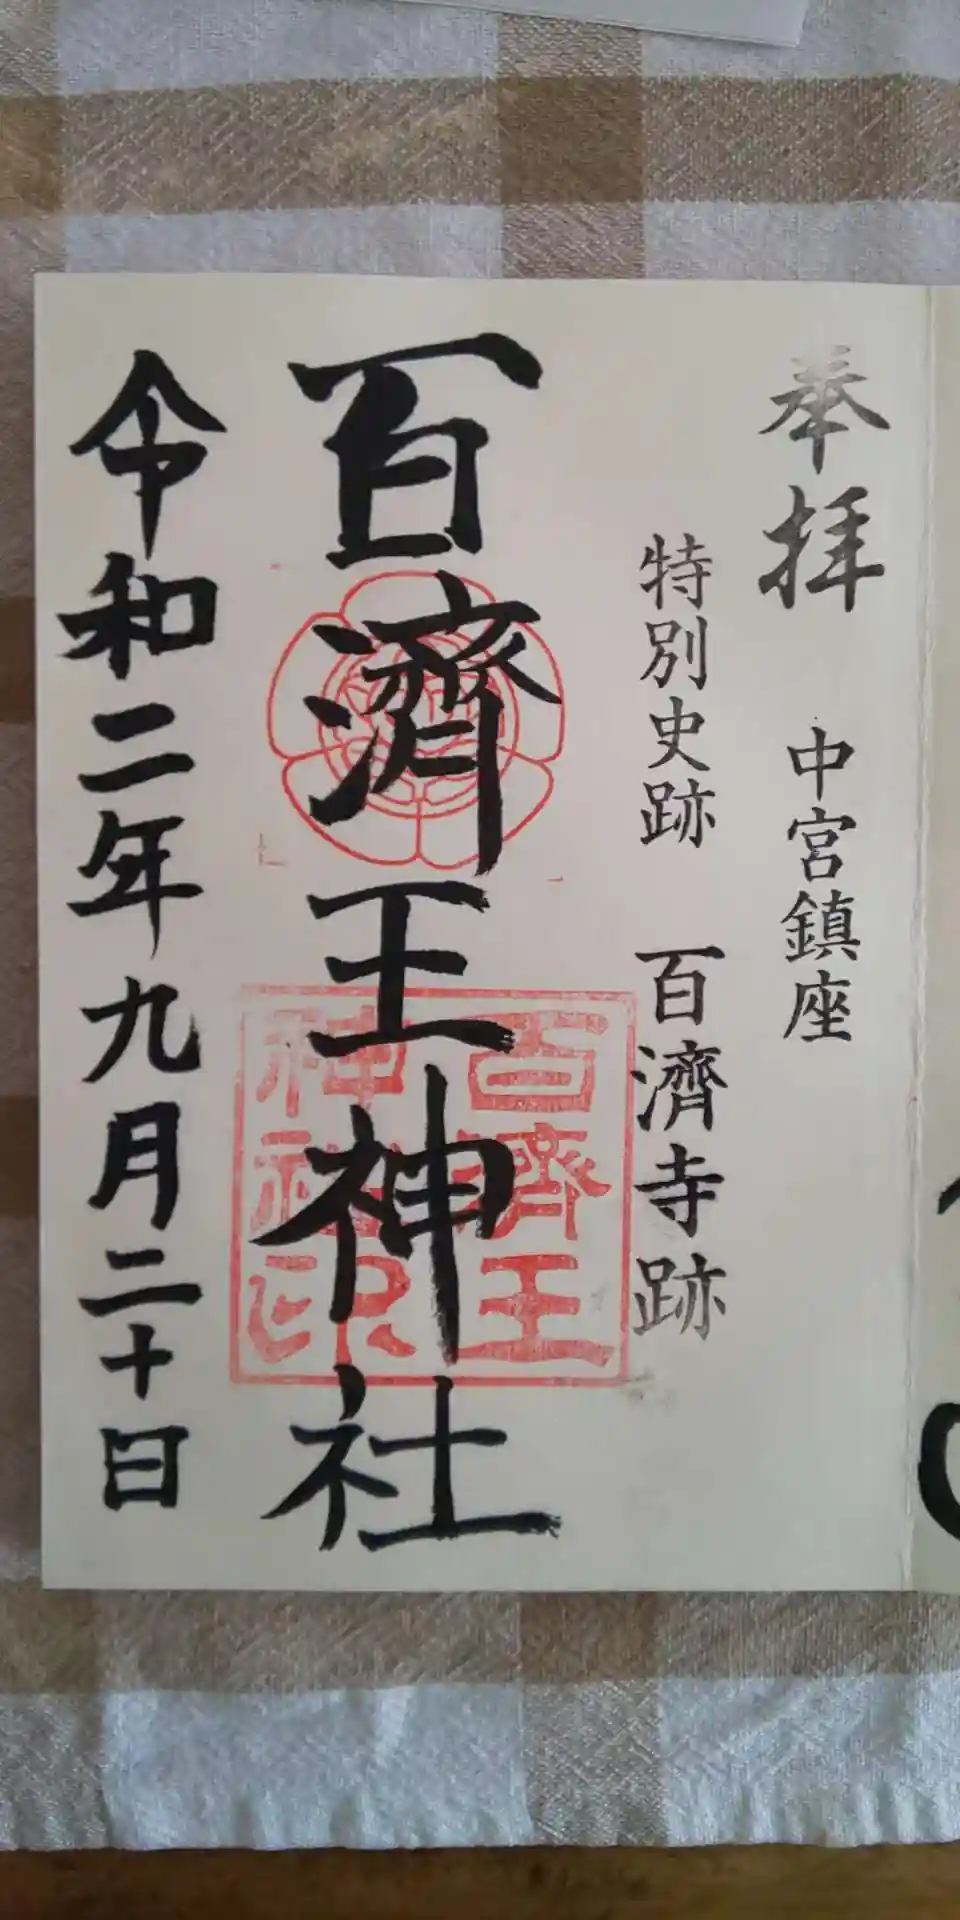 奉拝 中宮鎮座
特別史跡 百濟寺跡
百濟王神社
百濟王
神社印
令和二年九月二十日